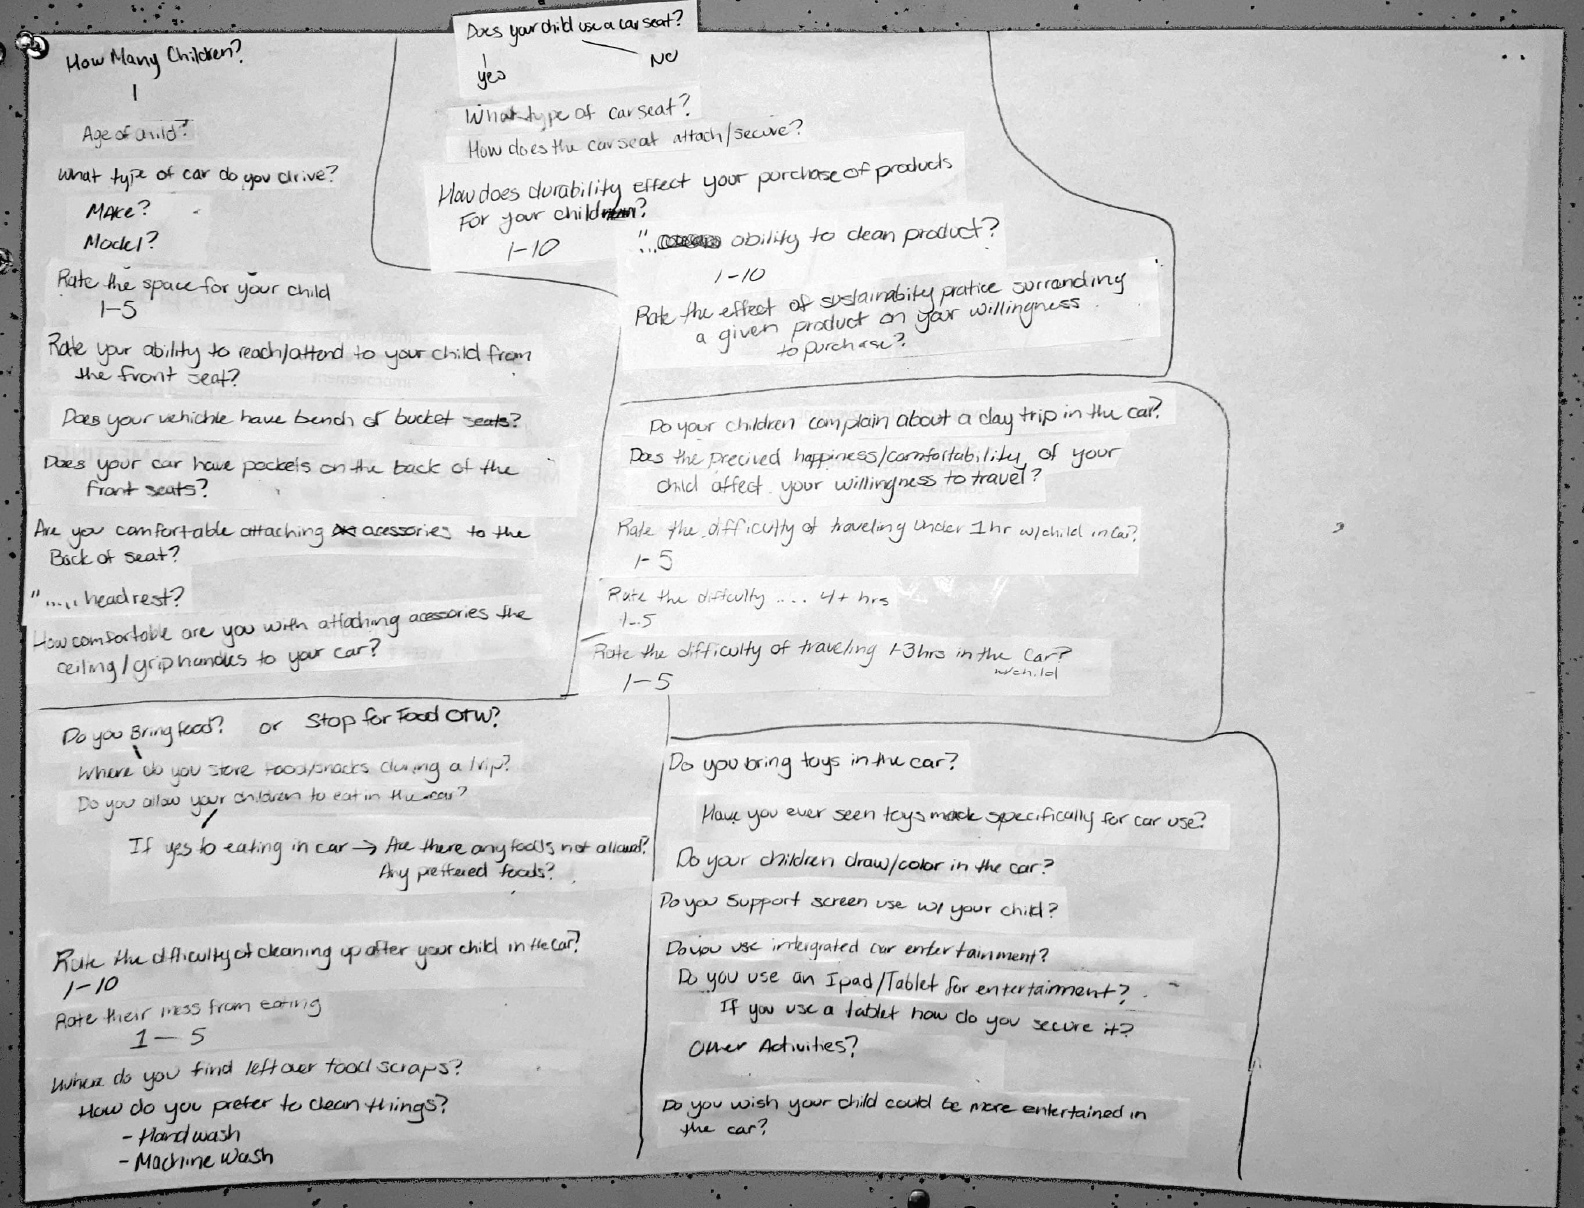 How Many Children?
1
Age of child?
What type of car do you drive?
Make?
Model?
Rate the space for your child
1-5
Rate your ability to reach/attend to your child from
the front seat?
Does your vehichle have bench or bucket seats?
Does your car have pockets on the back of the
front seats?
Are you comfortable attaching acessories to the
Back of seat?
"..... headrest?
How comfortable are you with attaching acessories the
ceiling/grip handles to your car?
Does your child use a car seat?
yes
NO
What type of car seat?
How does the car seat attach/secure?
How does durability effect your purchase of products
For your child?
1-10
"... ability to clean product?
1-10
Rate the effect of sustainabity pratice surronding
a given product on your willingness
to purchase?
Do your children complain about a day trip in the car?
Does the precived happiness/comfortability of your
child affect your willingness to travel?
Rate the difficulty of traveling under 1hr w/child in car?
1-5
Rate the difficulty .... 4+ hrs
1-5
Rate the difficulty of traveling 1-3hrs in the car?
w/child
1-5
Do you Bring food? or Stop for Food OTW?
Where do you store food/snacks during a trip?
Do you allow your children to eat in the car?
If yes to eating in car → Are there any foods not allowed?
Any preffered foods?
Rate the dfficulty of cleaning up after your child in the car?
1-10
Rate their mess from eating
1-5
Where do you find left over food scraps?
How do you prefer to clean things?
- Hand wash
- Machine Wash
Do you bring toys in the car?
Have you ever seen toys made specifically for car use?
Do your children draw/color in the car?
Do you Support screen use w/ your child?
Do you use intergrated car entertainment?
Do you use an Ipad/Tablet for entertainment?
If you use a tablet how do you secure it?
Other Activities?
Do you wish your child could be more entertained in
the car?